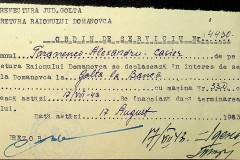 PREFECTURA JUD. GOLTA
PRETURA RAIONULUI DOMANOVCA
ORDIN DE SERVICIU No. 4450
Taranenco Alexandru casier
Pretura Raionului Domanovca se deplasează în interes de serviciu
la Domanovca la Golta la Banca
cu mașina No. 324
astăzi 17/VIII 43. Se înapoiază după terminarea
Dată astăzi 17 August 1943
17/VIII 43.